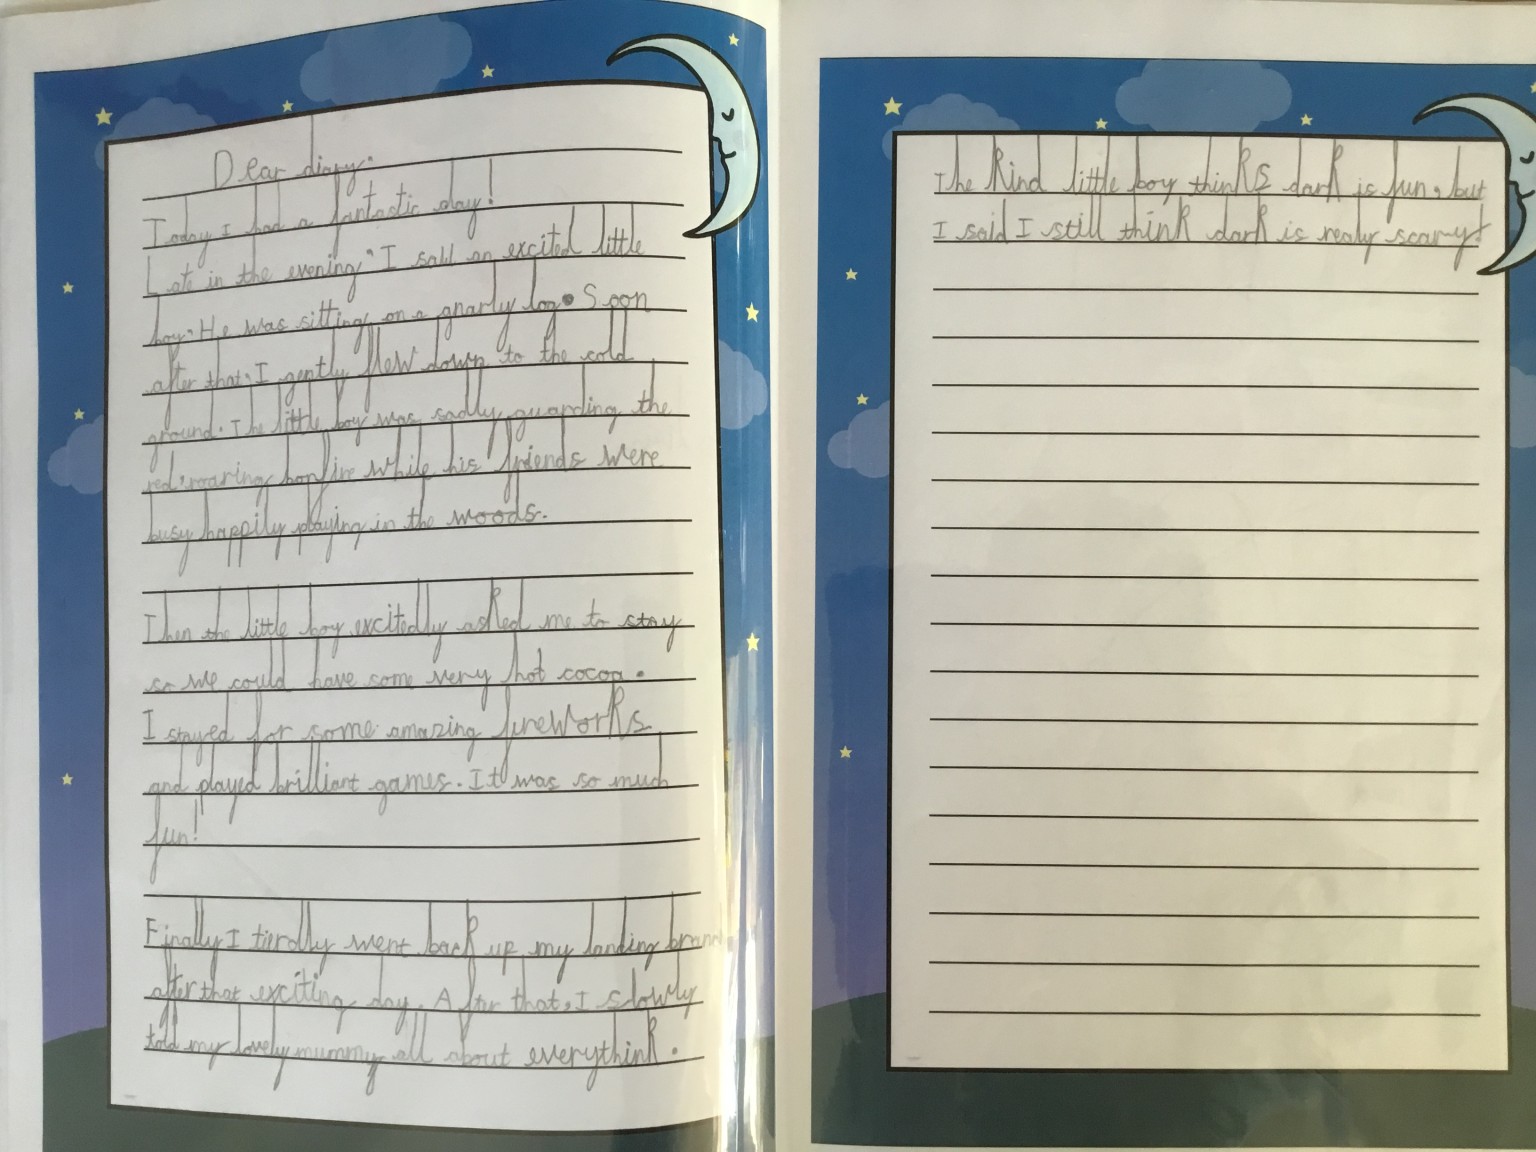 Dear diary.
Today I had a fantastic day!
Late in the evening, I saw an excited little
boy. He was sitting on a gnarly log. Soon
after that, I gently flew down to the cold
ground. The little boy was sadly guarding the
red, roaring bonfire while his friends were
busy happily playing in the woods.
Then the little boy excitedly asked me to stay
so we could have some very hot cocoa.
I stayed for some amazing fireworks
and played brilliant games. It was so much
fun!
Finally I tierdly went back up my landing
after that exciting day. After that, I slowly
told my lovely mummy all about everythink.
The kind little boy thinks dark is fun, but
I said I still think dark is realy scary!